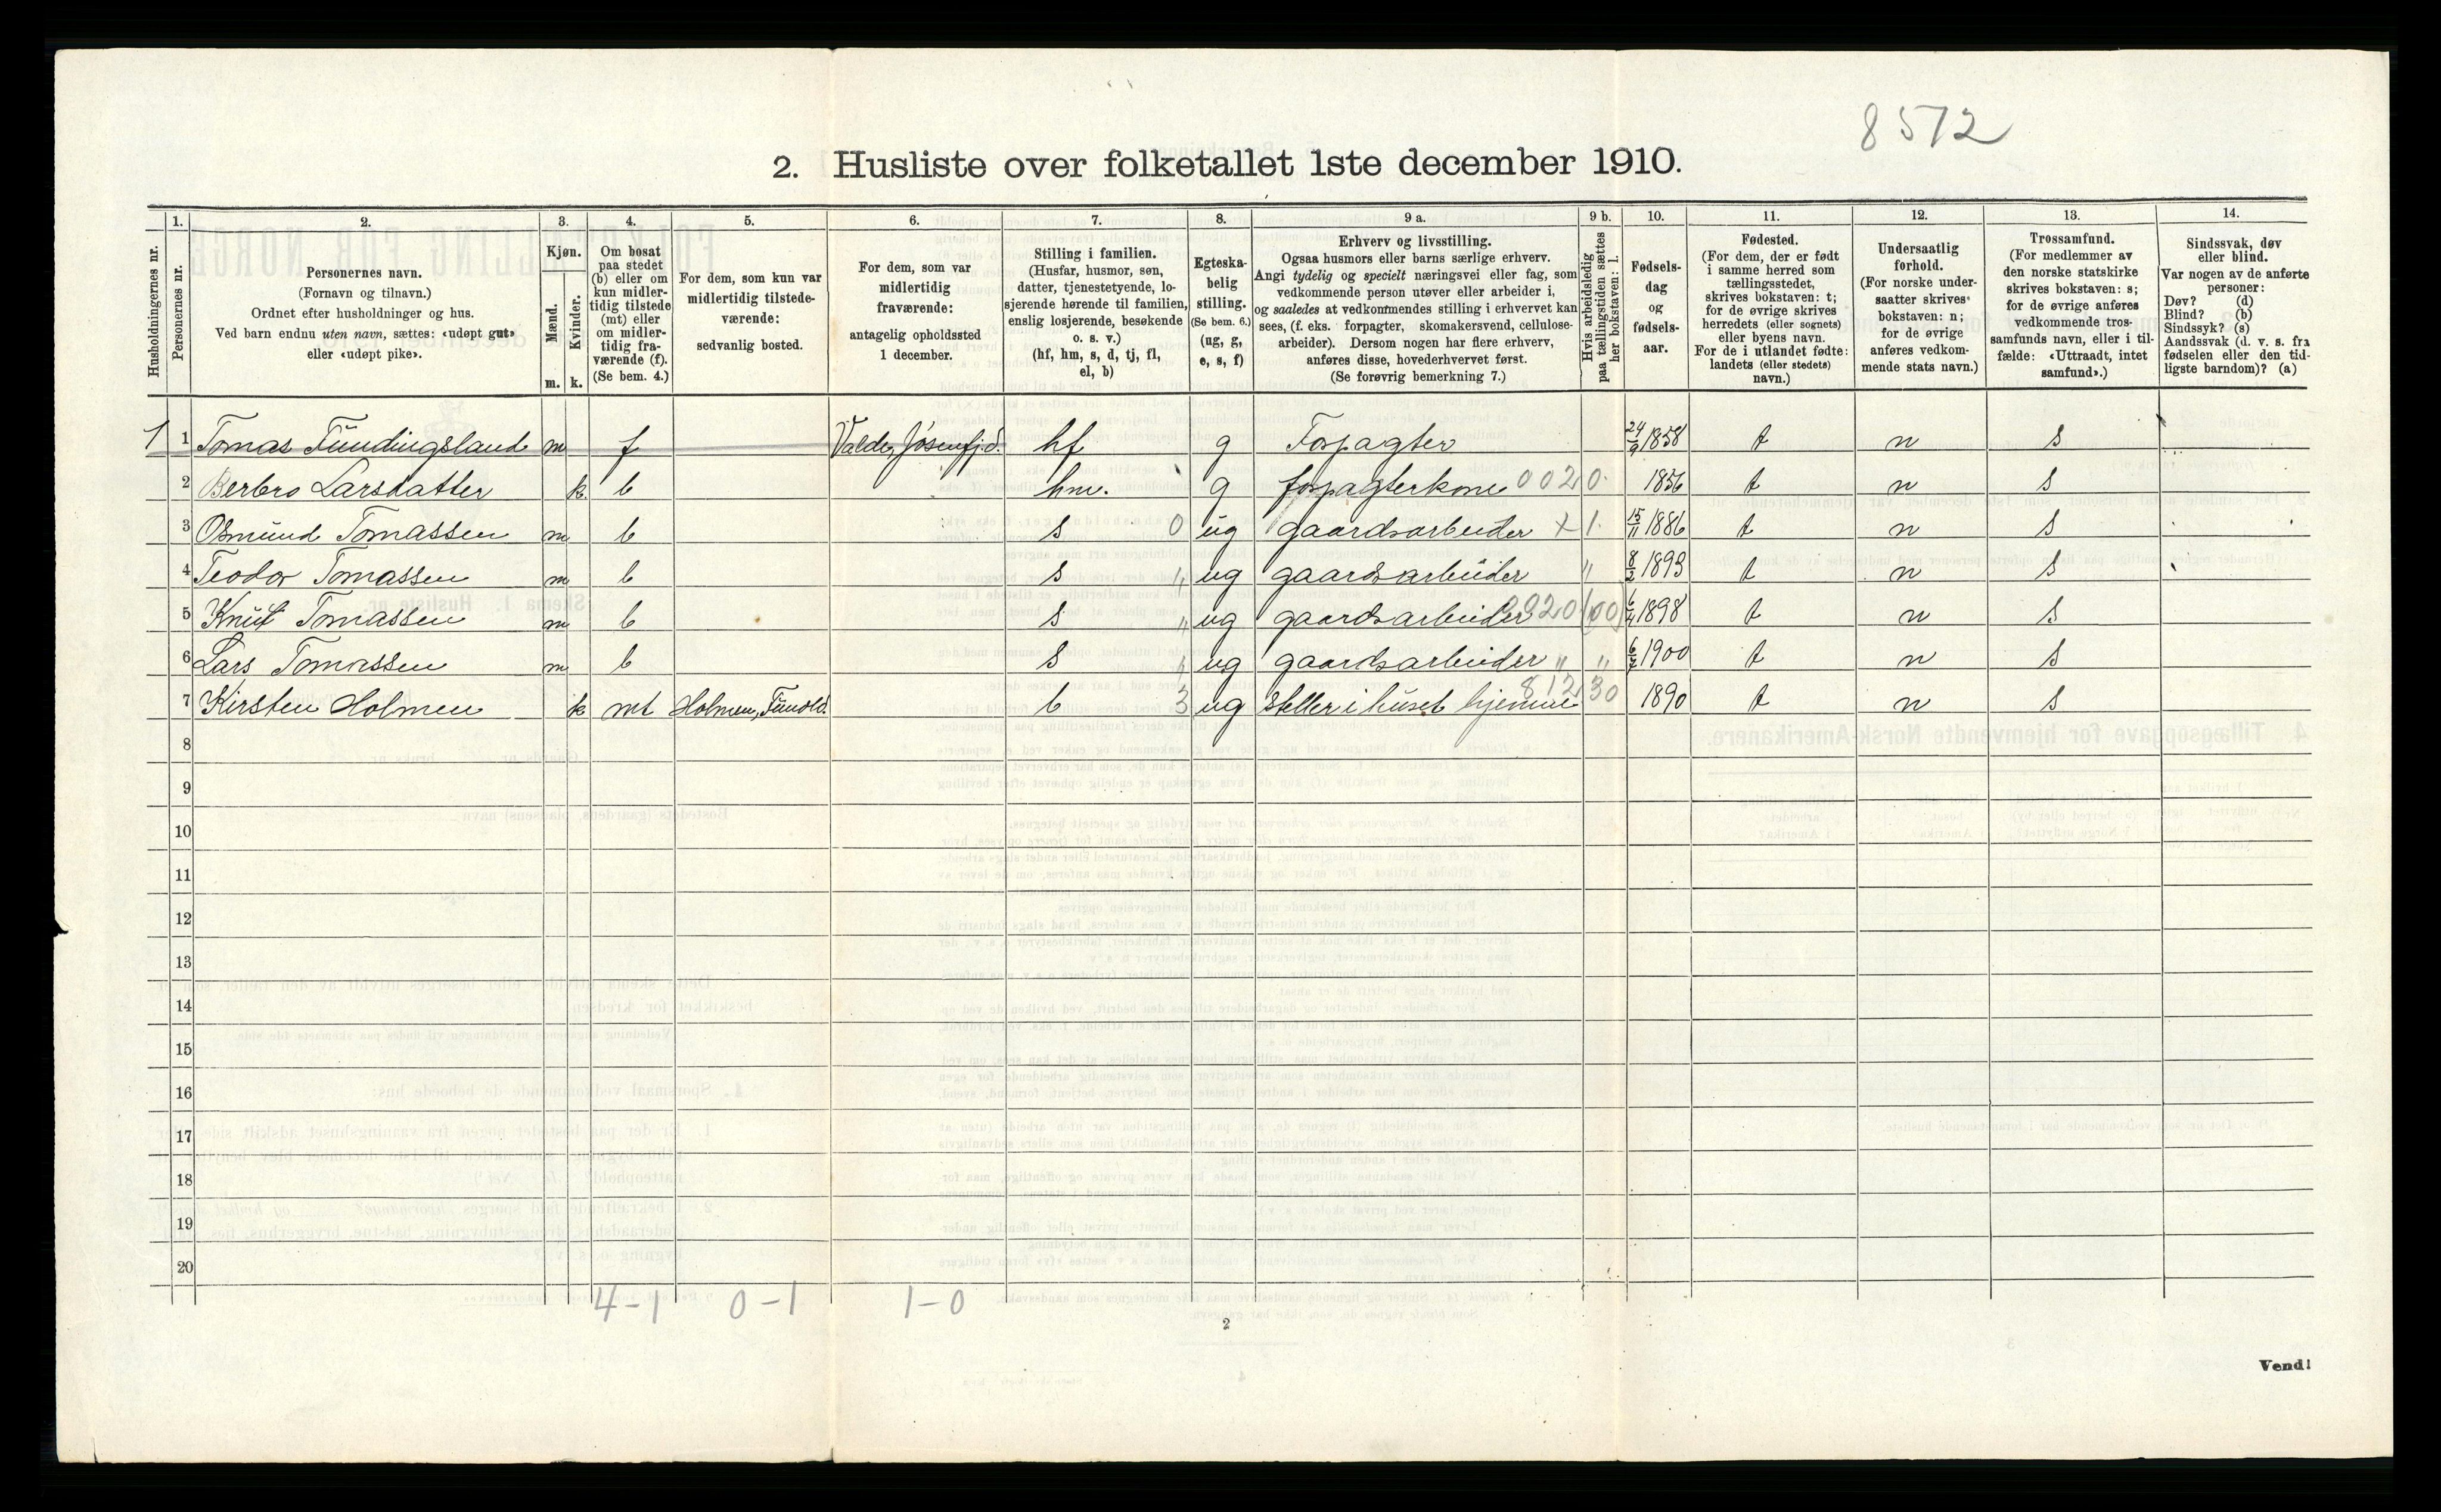 8572
2. Husliste over folketallet 1ste december 1910.
Husholdningernes nr.
1.
Personernes nr.
2.
Personernes navn.
(Fornavn og tilnavn.)
Ordnet efter husholdninger og hus.
Ved barn endnu uten navn, sættes: «udøpt gut»
eller «udøpt pike».
3.
Kjøn.
Mænd.
Kvinder.
m. k.
4.
Om bosat
paa stedet
(b) eller om
kun midler-
tidig tilstede
(mt) eller
om midler-
tidig fra-
værende (f).
(Se bem. 4.)
5.
For dem, som kun var
midlertidig tilstede-
værende:
sedvanlig bosted.
6.
For dem, som var
midlertidig
fraværende:
antagelig opholdssted
1 december.
7.
Stilling i familien.
(Husfar, husmor, søn,
datter, tjenestetyende, lo-
sjerende hørende til familien,
enslig losjerende, besøkende
o. s. v.)
(hf, hm, s, d, tj, fl,
el, b)
8.
Egteska-
belig
stilling.
(Se bem. 6.)
(ug, g,
e, s, f)
9 a.
Erhverv og livsstilling.
Ogsaa husmors eller barns særlige erhverv.
Angi tydelig og specielt næringsvei eller fag, som
vedkommende person utøver eller arbeider i,
og saaledes at vedkommendes stilling i erhvervet kan
sees, (f. eks. forpagter, skomakersvend, cellulose-
arbeider). Dersom nogen har flere erhverv,
anføres disse, hovederhvervet først.
(Se forøvrig bemerkning 7.)
9 b.
Hvis arbeidsledig
paa tællingstiden sættes
her bokstaven: l.
10.
Fødsels-
dag
og
fødsels-
aar.
11.
Fødested.
(For dem, der er født
i samme herred som
tællingsstedet,
skrives bokstaven: t;
for de øvrige skrives
herredets (eller sognets)
eller byens navn.
For de i utlandet fødte:
landets (eller stedets)
navn.)
12.
Undersaatlig
forhold.
(For norske under-
saatter skrives
bokstaven: n;
for de øvrige
anføres vedkom-
mende stats navn.)
13.
Trossamfund.
(For medlemmer av
den norske statskirke
skrives bokstaven: s;
for de øvrige anføres
vedkommende tros-
samfunds navn, eller i til-
fælde: «Uttraadt, intet
samfund».)
14.
Sindssvak, døv
eller blind.
Var nogen av de anførte
personer:
Døv? (d)
Blind? (b)
Sindssyk? (s)
Aandssvak (d. v. s. fra
fødselen eller den tid-
ligste barndom)? (a)
1 1 Tomas Fundingsland m f Valde, Jøsenfj.d. hf g Forpagter 24/9 1858 t n s
2 Berbro Larsdatter k. b hm. g forpagterkone 0020. 1856 t n s
3 Osmund Tomassen m b s 0 ug gaardsarbeider + 1. 15/11 1886 t n s
4 Teodor Tomassen m b s " ug gaardsarbeider " 8/2 1893 t n s
5 Knut Tomassen m b s " ug gaardsarbeider 1898 t n s
6 Lars Tomassen m b s " ug gaardsarbeider " " 1900 t n s
7 Kirsten Holmen k mt Holmen, b 3 ug steller i huset hjemme 812 30 1890 t n s
8
9
10
11
12
13
14
15
16
17
18
19
20
4-1 0-1 1-0
2
Vend!